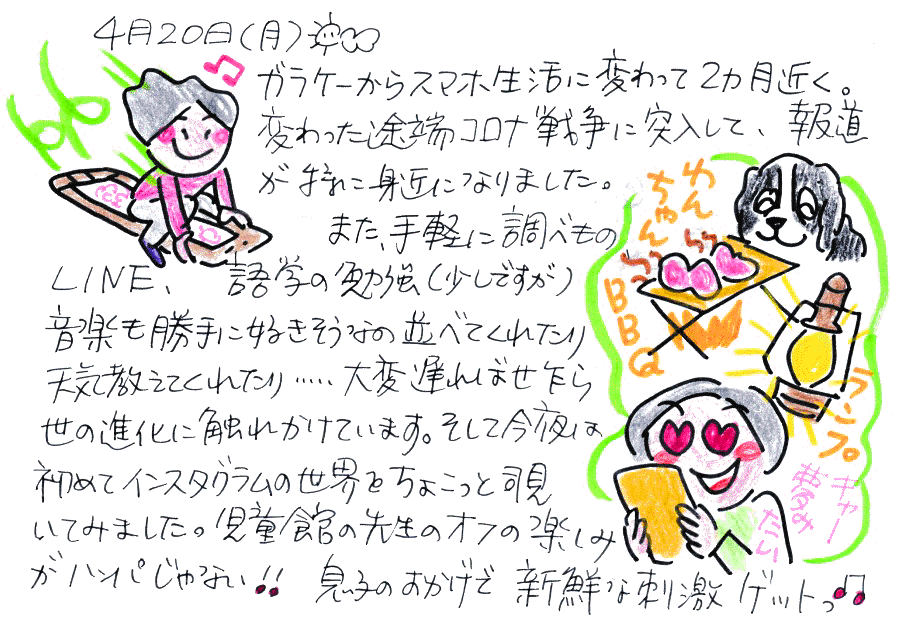 4月20日(月)
ガラケーからスマホ生活に変わって2カ月近く。
変わった途端コロナ戦争に突入して、報道
が特に身近になりました。
また、手軽に調べもの
LINE、語学の勉強(少しですが)
音楽も勝手に好きそうなの並べてくれたり
天気教えてくれたり……大変遅ればせ乍ら
世の進化に触れかけています。そして今夜は
初めてインスタグラムの世界をちょこっと覗
いてみました。児童館の先生のオフの楽しみ
がハンパじゃない!!息子のおかげで新鮮な刺激ゲットっ
わん
ちゃん
BBQ
ランプ。
キャー
夢み
たい